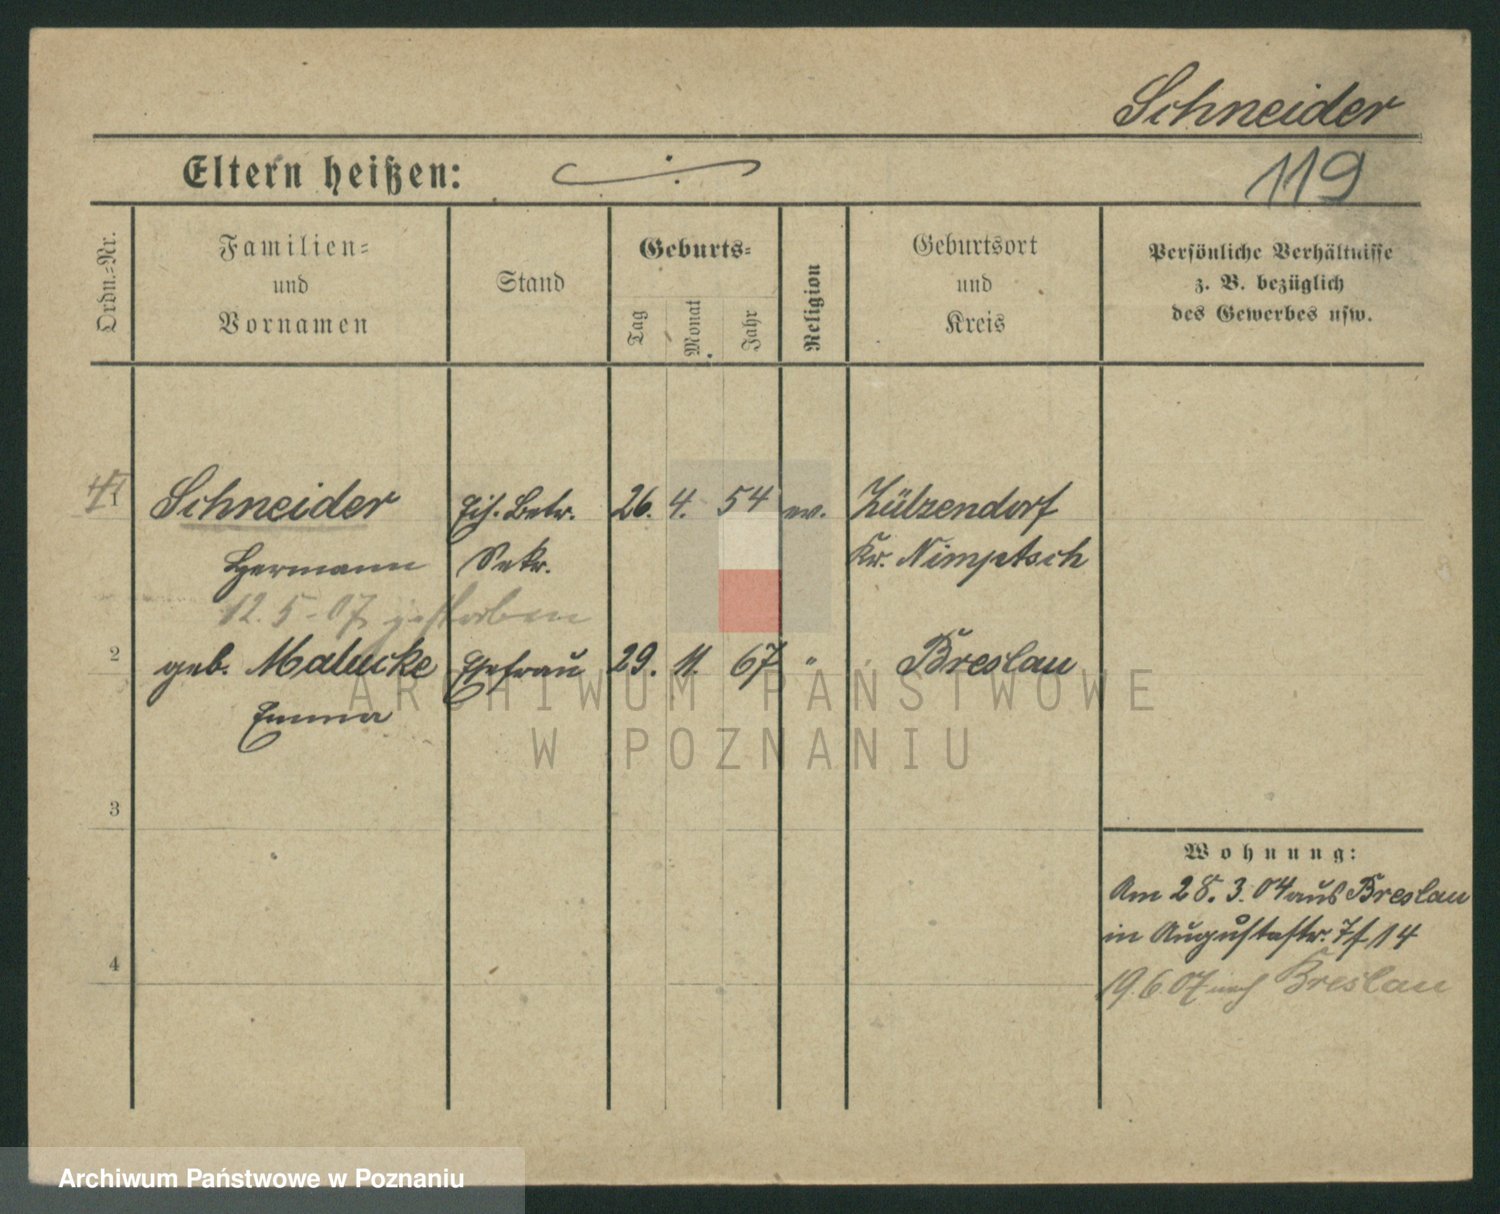 Schneider
Eltern heißen:
119
Ordn.-Nr.
Familien-
und
Vornamen
Stand
Geburts-
Tag
Monat
Jahr
Religion
Geburtsort
und
Kreis
Persönliche Verhältnisse
z. B. bezüglich
des Gewerbes usw.
1 Schneider Eis. Betr. 26. 4. 54 ev. Zülzendorf
Hermann Sekr. Kr. Nimptsch
12.5.07 gestorben
2 geb. Malucke Ehefrau 29. 11. 67 " Breslau
Emma
ARCHIWUM PAŃSTWOWE
W POZNANIU
3
Wohnung:
Am 28.3.04 aus Breslau
in Augustastr. 14
4
19.6.07 nach Breslau
Archiwum Państwowe w Poznaniu